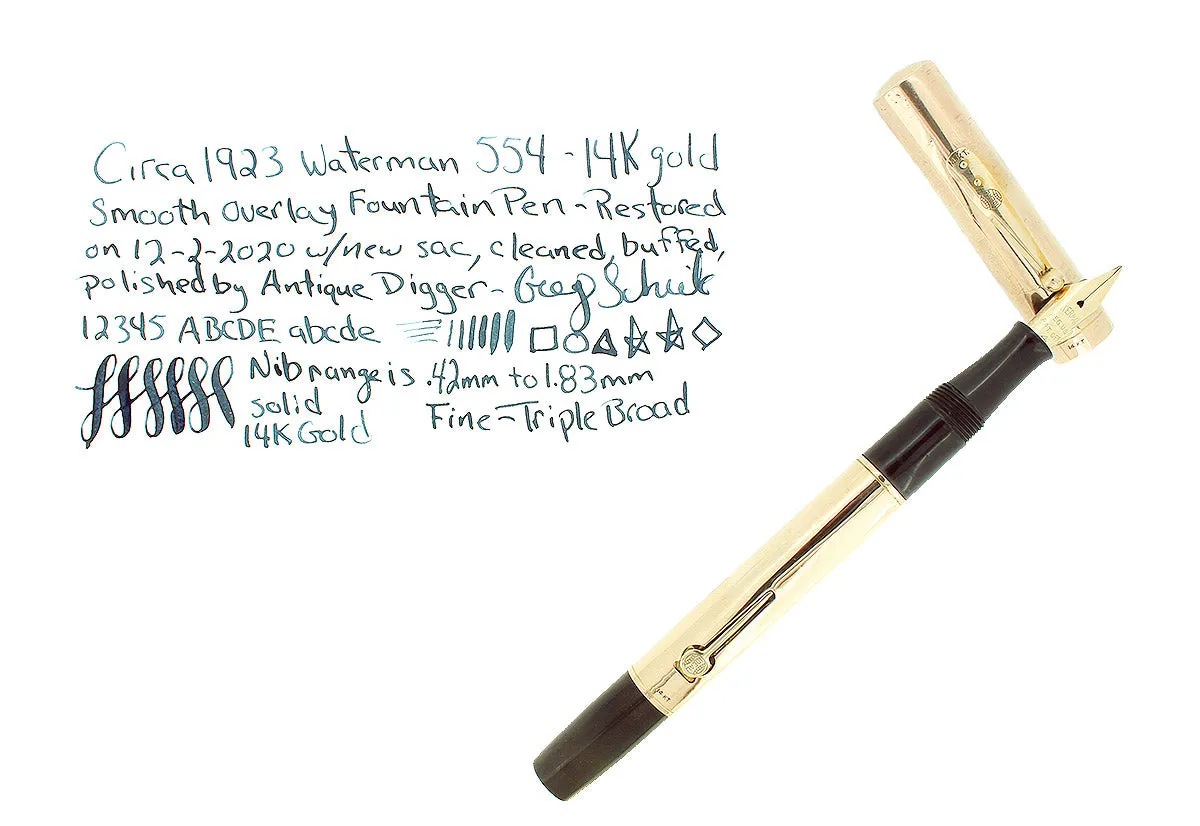 Circa 1923 Waterman 554 - 14K gold
Smooth Overlay Fountain Pen - Restored
on 12-2-2020 w/new sac, cleaned, buffed,
polished by Antique Digger - Greg
12345 ABCDE abcde
Nib range is .42mm to 1.83mm
solid Fine-Triple Broad
14K Gold